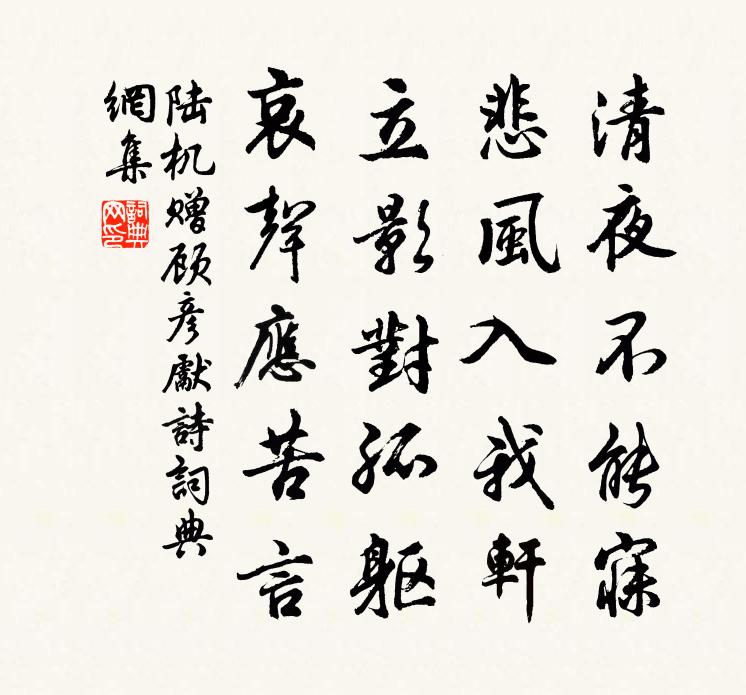 清夜不能寐
悲風入我軒
立影對孤軀
哀聲應苦言
陆机赠顾彦獻詩詞典
網集
詞典網印